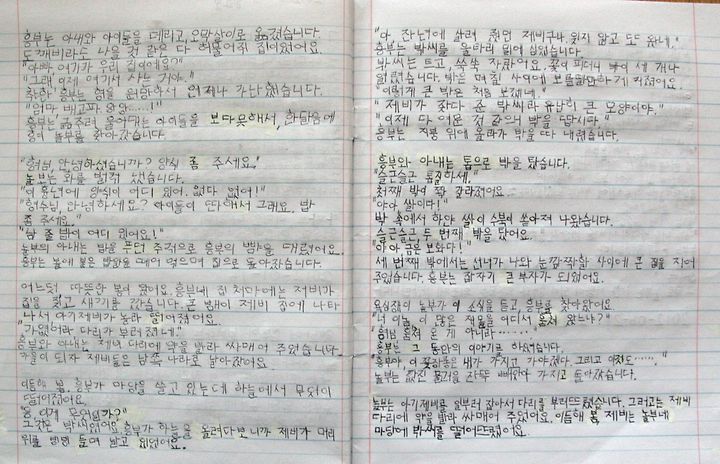 흥부는 아내와 아이들을 데리고, 오막살이로 옮겼습니다.
도깨비라도 나올 것 같은 다 허물어진 집이었어요.
"아빠 여기가 우리 집이에요?"
"그래 이제 여기서 사는 거야."
착한 흥부는 형을 원망하지 언제나 가난했습니다.
"엄마 배고파 앙앙……!"
흥부는 굶주려 울어대는 아이들을 보다못해서, 한달음에
형의 놀부를 찾아갔습니다.
"형님, 안녕하셨습니까? 양식 좀 주세요."
놀부는 화를 벌컥 냈습니다.
"이 흉년에 양식이 어디 있어. 없다 없어!"
"형수님, 안녕하세요? 아이들이 딱해서 그래요. 밥
좀 주세요."
"밥 줄 밥이 어디 있어요!"
놀부의 아내는 밥을 푸던 주걱으로 흥부의 뺨을 때렸어요.
흥부는 볼에 붙은 밥알을 떼어 먹으며 집으로 돌아갔습니다.
어느덧 따뜻한 봄이 왔어요. 흥부네 집 처마에는 제비가
집을 짓고 새끼를 깠습니다. 큰 뱀이 제비 집에 나타
나서 아기제비가 놀라 떨어졌어요.
"가엾어라 다리가 부러졌네."
흥부와 아내는 제비 다리에 약을 발라 싸매어 주었습니다.
가을이 되자 제비들은 남쪽 나라로 날아갔어요.
이듬해 봄, 흥부가 마당을 쓸고 있는데 하늘에서 무엇이
떨어졌어요.
"응, 이게 무엇일까?"
그것은 박씨였어요. 흥부가 하늘을 올려다보니까 제비가 머리
위를 빙빙 돌며 날고 있었어요.
"아 작년에 살려 줬던 제비구나. 잊지 않고 또 왔네."
흥부는 박씨를 울타리 밑에 심었습니다.
박씨는 트고 쑥쑥 자랐어요. 꽃이 피더니 박이 세 개나
열렸습니다. 박은 며칠 사이에 보름달만하게 커졌어요.
"이렇게 큰 박은 처음 보겠네."
"제비가 갖다 준 박씨라 유난히 큰 모양이야."
"이제 다 여문 것 같으니 박을 탑시다."
흥부는 지붕 위에 올라가 박을 따 내렸습니다.
흥부와 아내는 톱으로 박을 탔습니다.
"슬근슬근 톱질하세."
첫째 박이 쫙 갈라졌어요.
"야아 쌀이다!"
박 속에서 하얀 쌀이 수북이 쏟아져 나왔습니다.
슬근슬근, 두 번째 박을 탔어요.
"아아 금은 보화다!"
세 번째 박에서는 선녀가 나와 눈 깜짝할 사이에 큰 집을 지어
주었습니다. 흥부는 갑자기 큰 부자가 되었어요.
욕심쟁이 놀부가 이 소식을 듣고, 흥부를 찾아왔어요.
"너 이놈, 이 많은 재물을 어디서 훔쳐 왔느냐?"
"형님 훔쳐 온 게 아니라……"
흥부는 그 동안의 이야기를 하였습니다.
"흥부야, 이 꽃장롱은 내가 가지고 가야겠다. 그리고 이것도……."
놀부는 값진 물건을 잔뜩 빼앗아 가지고 돌아갔습니다.
놀부는 아기제비를 일부러 잡아서 다리를 부러뜨렸습니다. 그러고는 제비
다리에 약을 발라 싸매어 주었어요. 이듬해 봄, 제비는 놀부네
마당에 박씨를 떨어뜨렸어요.